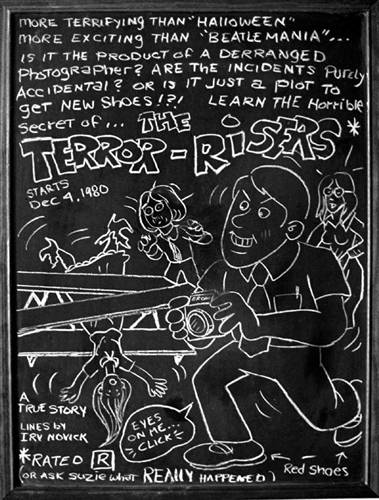 MORE TERRIFYING THAN "HALLOWEEN"
MORE EXCITING THAN "BEATLEMANIA"...
IS IT THE PRODUCT OF A DERRANGED
PHOTOGRAPHER? ARE THE INCIDENTS PURELY
ACCIDENTAL? OR IS IT JUST A PLOT TO
GET NEW SHOES!?! LEARN THE HORRIBLE
SECRET OF... THE
TERROR-RISERS*
STARTS
DEC 4, 1980
A
TRUE STORY
LINES BY
IRV NOVICK
EYES
ON ME...
CLICK
*RATED R
(OR ASK SUZIE WHAT REALLY HAPPENED)
Red Shoes